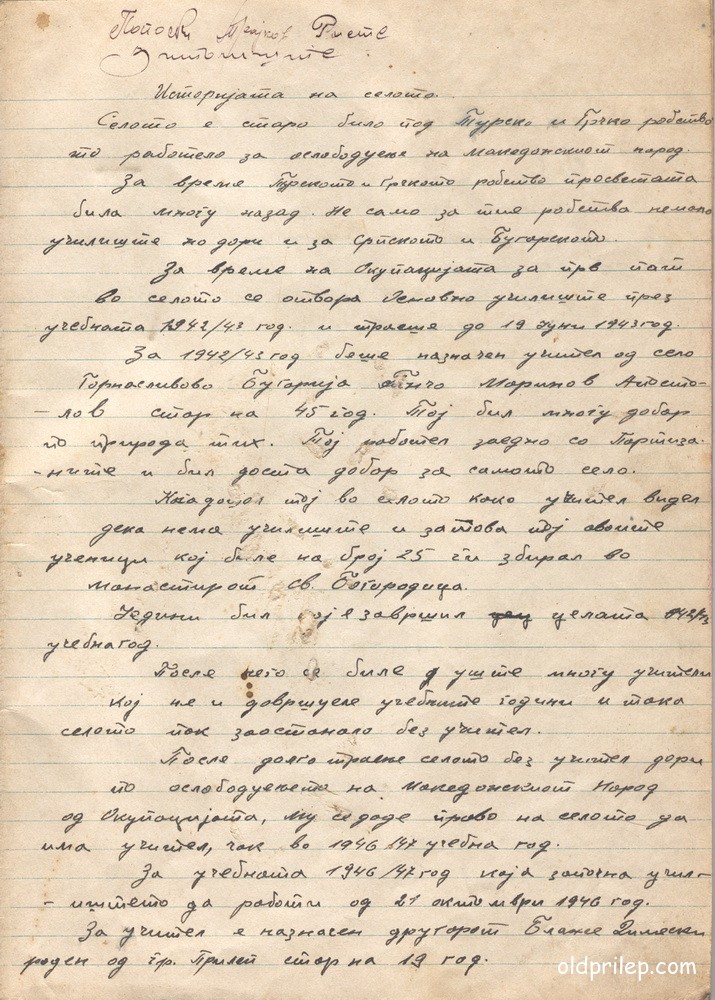 Попоски Трајков Ристе
Историјата на селото.
Селото е старо било под Турско и Грчко робство
то работело за ослободуење на Македонскиот народ.
За време Турското и Грчкото робство просветата
била многу назад. Не само за тие робства немало
училиште но дори и за Српското и Бугарското.
За време на Окупацијата за прв пат
во селото се отвора Основно училиште през
учебната 1942/43 год. и траеше до 19 Јуни 1943 год.
За 1942/43 год беше назначен учител од село
Горнасливово Бугарија Маринов Апосто-
-лов стар на 45 год. Тој бил многу добар
по природа тих. Тој работел заедно со Партиза-
-ните и бил доста добар за самото село.
Кога дошол тој во селото како учител видел
дека нема училиште и затова тој своите
ученици кој биле на број 25 ги збирал во
манастирот Св. Богородица.
Једини бил кој е завршил целата 942/43
учебна год.
После него се биле уште многу учители
кој не и довршуеле учебните години и така
селото пак заостанало без учител.
После долго траење селото без учител дори
по ослободуењето на Македонскиот Народ
од Окупацијата, му се даде право на селото да
има учител, чак во 1946/47 учебна год.
За учебната 1946/47 год која започна учил-
-иштето да работи од 21 октомври 1946 год.
За учител е назначен другарот Блаже Димески
роден од гр. Прилеп стар на 19 год.
oldprilep.com